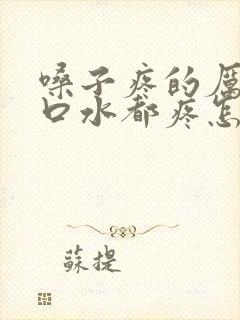 嗓子疼的厉
口水都疼怎
蘇提